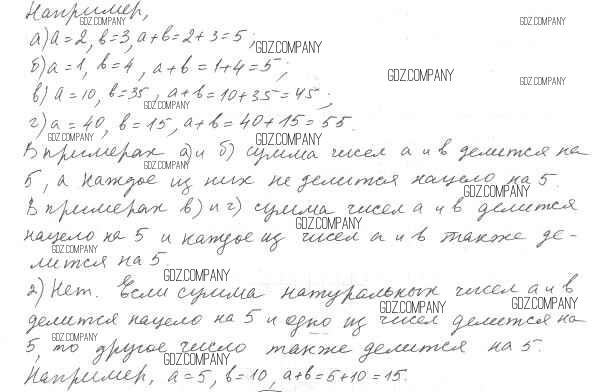 Например,
GDZ.COMPANY GDZ.COMPANY
а) a=2, b=3, a+b=2+3=5;
GDZ.COMPANY
б) a=1, b=4, a+b=1+4=5;
GDZ.COMPANY GDZ.COMPANY GDZ.COMPANY
в) a=10, b=35, a+b=10+35=45;
GDZ.COMPANY
г) a=40, b=15, a+b=40+15=55.
GDZ.COMPANY GDZ.COMPANY
В примерах а) и б) сумма чисел a и b делится на
GDZ.COMPANY
5, а каждое из них не делится нацело на 5.
GDZ.COMPANY
В примерах в) и г) сумма чисел a и b делится
GDZ.COMPANY
нацело на 5 и каждое из чисел a и b также де-
GDZ.COMPANY
лится на 5.
GDZ.COMPANY
2) Нет. Если сумма натуральных чисел a и b
GDZ.COMPANY GDZ.COMPANY
делится нацело на 5 и одно из чисел делится на
GDZ.COMPANY
5, то другое число также делится на 5.
GDZ.COMPANY
Например, a=5, b=10, a+b=5+10=15.